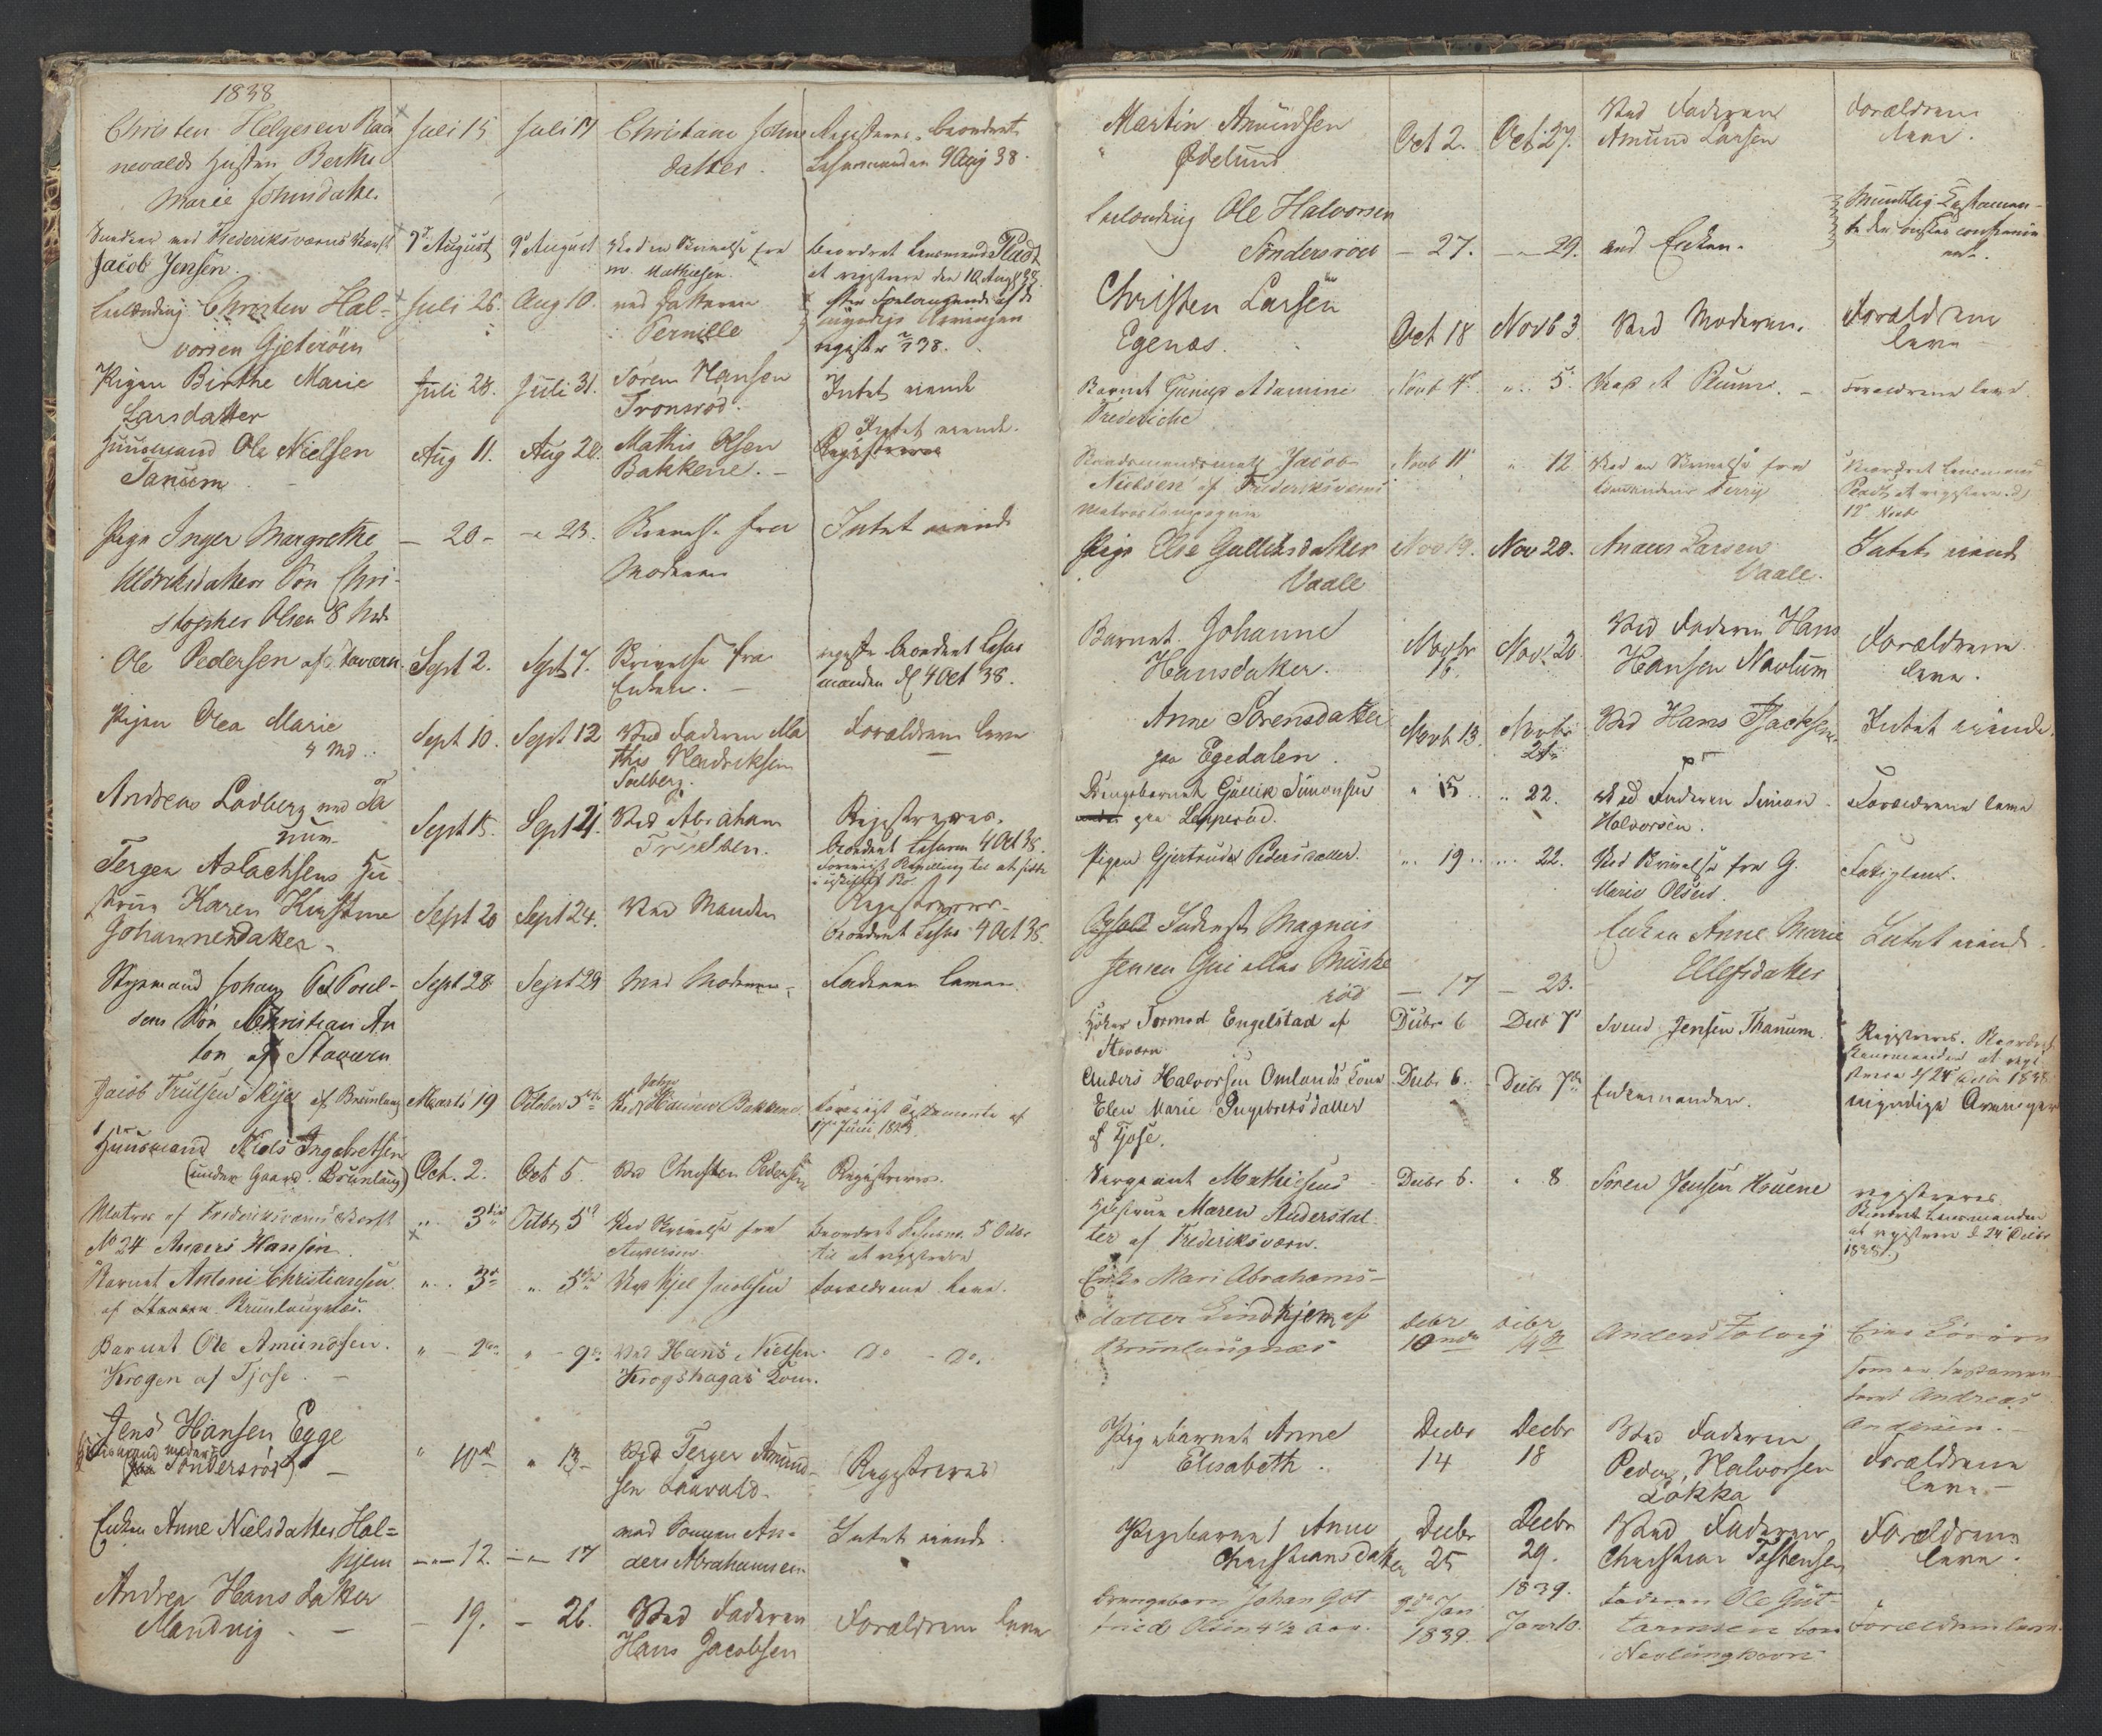 1838
Christen Helgesen Raa
nevalds Hustru Berthe
Marie Johnsdatter
Juli 15
Juli 17
Christiane Johns
datter.
Registeres. beordret
Lensmanden 9 Aug 38.
med Frederiksværns
Jacob Jensen.
9de August
9de August
Ved en Skrivelse fra
M. Mathiesen.
beordret Lensmand Radt
at registrere den 10 Aug 38
Christen Hal-
vorsen Gjeteröen
Juli 26.
Aug 10.
ved Datteren
Pernille
Pigen Birthe Marie
Larsdatter
Juli 28.
Juli 31.
Sören Hansen
Tronsröd.
Intet eiende
Huusmand Ole Nielsen
Tanum
Aug 11.
Aug 20.
Mathis Olsen
Bakkene.
Intet eiende.
Registreres
Pige Inger Margrethe
Uldriksdatters Sön Chri-
stopher Olsen 8 Md.
- 20 -
- 23.
Skrivelse fra
Moderen
Intet eiende
Ole Pedersen af Stavern
Sept 2.
Sept 7.
Skrivelse fra
Enken.
beordret Lens
manden d. 4 Oct 38.
Pigen Olea Marie
4 Md.
Sept 10.
Sept 12
Ved Faderen Ma
this Hendriksen
Solberg.
Forældrene leve
Andreas Ladberg ved Ta
num
Sept 15.
Sept 21.
Ved Abraham
Registreres.
beordret Lensm 4 Oct 38.
Terger Aslachsens Hu
struе Karen Kirstine
Johannesdatter
Sept 20
Sept 24.
Ved Manden
Registreres
beordret Lensm 4 Oct 38.
Styrmand Johan P. Poul-
sens Sön Christian An
ton af Stavern
Sept 28
Sept 29
Ved Moderen
Faderen
Jacob Trulsen Skye af Brunlaug
Marts 19
October 5te
Ved John Hansen Bakkene.
Foreviist Testamente af
Juni 1823
Huusmand Niels Ingebretsen
(under Gaard Brunlaug)
Oct. 2.
Oct 5.
Ved Christen Pedersen
Registreres.
Matros af Frederiksværns Værft
No 24 Anders Hansen
" 3die
Octbr 5te
Ved Skrivelse fra
beordret Lensm. 5 Octbr
til at registrere
Barnet Antoni Christiansen
af Stavern Brunlaugnæs.
" 3de
" 5te
Ved Kjel Jacobsen
Forældrene leve.
Barnet Ole Amundsen.
Krogen af Tjose.
" 9de
Ved Hans Nielsen
Krogshagas Kone.
Do - Do.
Jens Hansen Egge
Huusmand under
Söndersröd
" 10de
" 13
Ved Terger Amund-
sen Laavald.
Registreres
Enken Anne Nielsdatter Hal=
hjem
- 12.
- 17
ved Sønnen An-
ders Abrahamsen
Intet eiende.
Andrea Hansdatter
Mandvig
- 19.
- 26.
Ved Faderen
Hans Jacobsen
Forældrene leve
Martin Amundsen
Ødelund
Oct 2.
Oct 27.
Ved Faderen
Amund Larsen
Forældrene
leve.
Ole Halvorsen
Söndersröd
- 27.
- 29.
ved Enken.
Mundtlig Testamen-
te
Christen Larsen
Egenæs.
Oct 18
Novb 3
Ved Moderen.
Forældrene
leve
Barnet Adamine
Frederiche
Novb 4de
" 5
Forældrene leve
Jacob
Nielsen af Frederiksværns
Matros Compagnie
Novb 11
" 12
Ved en Skrivelse fra
Commandeur Ferry
Beordret Lensmand
Radt at registrere d.
12 Novb
Pige Else Gulliksdatter
Vaale
Nov 19.
Nov 20.
Anders Larsen
Vaale.
Intet eiende
Barnet Johanne
Hansdatter.
Novbr
16.
Nov. 20
Ved Faderen Hans
Hansen Navlum
Forældrene
leve.
Anne Sörensdatter
paa Egedalen.
Novb 13.
Novbr
21
Ved Hans
Intet eiende.
Drengebarnet Gullik Simonsen
paa Lapperöd.
" 15
" 22.
Ved Faderen Simon
Halvorsen.
Forældrene leve
Pigen Gjertrude Pedersdatter.
" 19
" 22.
Ved Skrivelse fra G.
Marie Olsen.
Fattiglem.
Magnus
Jensen Gui eller Muske
röd
- 17
- 23.
Enken Anne Marie
Ellefsdatter
Intet eiende.
Tormod Engelstad af
Stavern
Decbr 6
Decb 7de
Svend Jensen Thanum.
Registreres. Beordret
Lensmanden at regi-
strere d. 24 Decbr 1838
Anders Halvorsen Omlands Kone
Elen Marie Ingebretsdatter
af Tjose.
Decbr 6.
Decbr 7de
Enkemanden.
myndige Arvinger
Sergeant Mathiesens
Hustrue Maren Andersdat-
ter af Frederiksværn.
Decbr 6.
" 8
Sören Jensen Hvuene
registreres
Beordret Lensmanden
at registrere d. 24 Decbr
1838.
Enke Mari Abrahams-
datter Lindhjem af
Brunlaugnæs
Decbr
10nde
Decbr
14de
Anders Folvig
som er testamen-
teret Andreas
Andersen.
Pigebarnet Anne
Elisabeth.
Decbr
14
Decbr
18
Ved Faderen
Peder Halvorsen
Løkka
Forældrene
leve
Pigebarnet Anne
Christiansdatter
Decbr
25
Decbr
29.
Ved Faderen
Christian Tostensen
Forældrene
leve.
Drengebarn Johan Got-
fried Olsen 4½ Aar.
8de Jan
1839.
1839.
Janr 10.
Faderen Ole Gut-
tormsen
i Nevlunghavn
Forældrene leve.